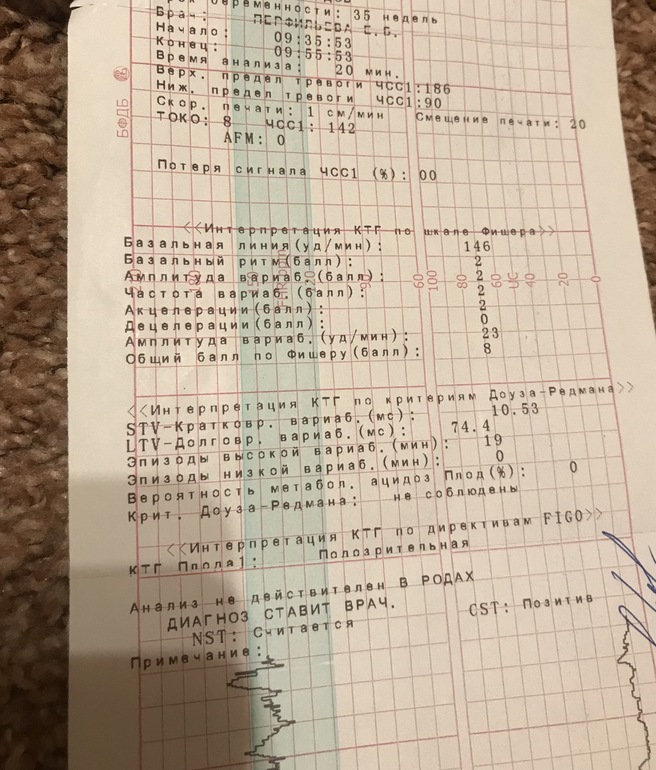 временности: 35 недель
Врач: ПЕРФИЛЬЕВА Е.
Начало: 09:35:53
Конец: 09:55:53
Время анализа: 20 мин.
Верх. предел тревоги ЧСС1:186
Ниж. предел тревоги ЧСС1:90
Скор. печати: 1 см/мин Смещение печати: 20
ТОКО: 8 ЧСС1: 142
AFM: 0
БФДБ
Потеря сигнала ЧСС1 (%): 00
<<Интерпретация КТГ по шкале Фишера>>
Базальная линия(уд/мин): 146
Базальный ритм(балл): 2
Амплитуда вариаб.(балл): 2
Частота вариаб.(балл): 2
Акцелерации(балл): 2
Децелерации(балл): 0
Амплитуда вариаб.(уд/мин): 23
Общий балл по Фишеру(балл): 8
60 100 80 60 UC 40 20 0
<<Интерпретация КТГ по критериям Доуза-Редмана>>
STV-Кратковр. вариаб.(мс): 10.53
LTV-Долговр. вариаб.(мс): 74.4
Эпизоды высокой вариаб.(мин): 19
Эпизоды низкой вариаб.(мин): 0
Вероятность метабол. ацидоз Плод(%): 0
Крит. Доуза-Редмана: не соблюдены
<<Интерпретация КТГ по директивам FIGO>>
КТГ Плода1: Подозрительная
Анализ не действителен В РОДАХ
ДИАГНОЗ СТАВИТ ВРАЧ.
NST: Считается CST: Позитив
Примечание: